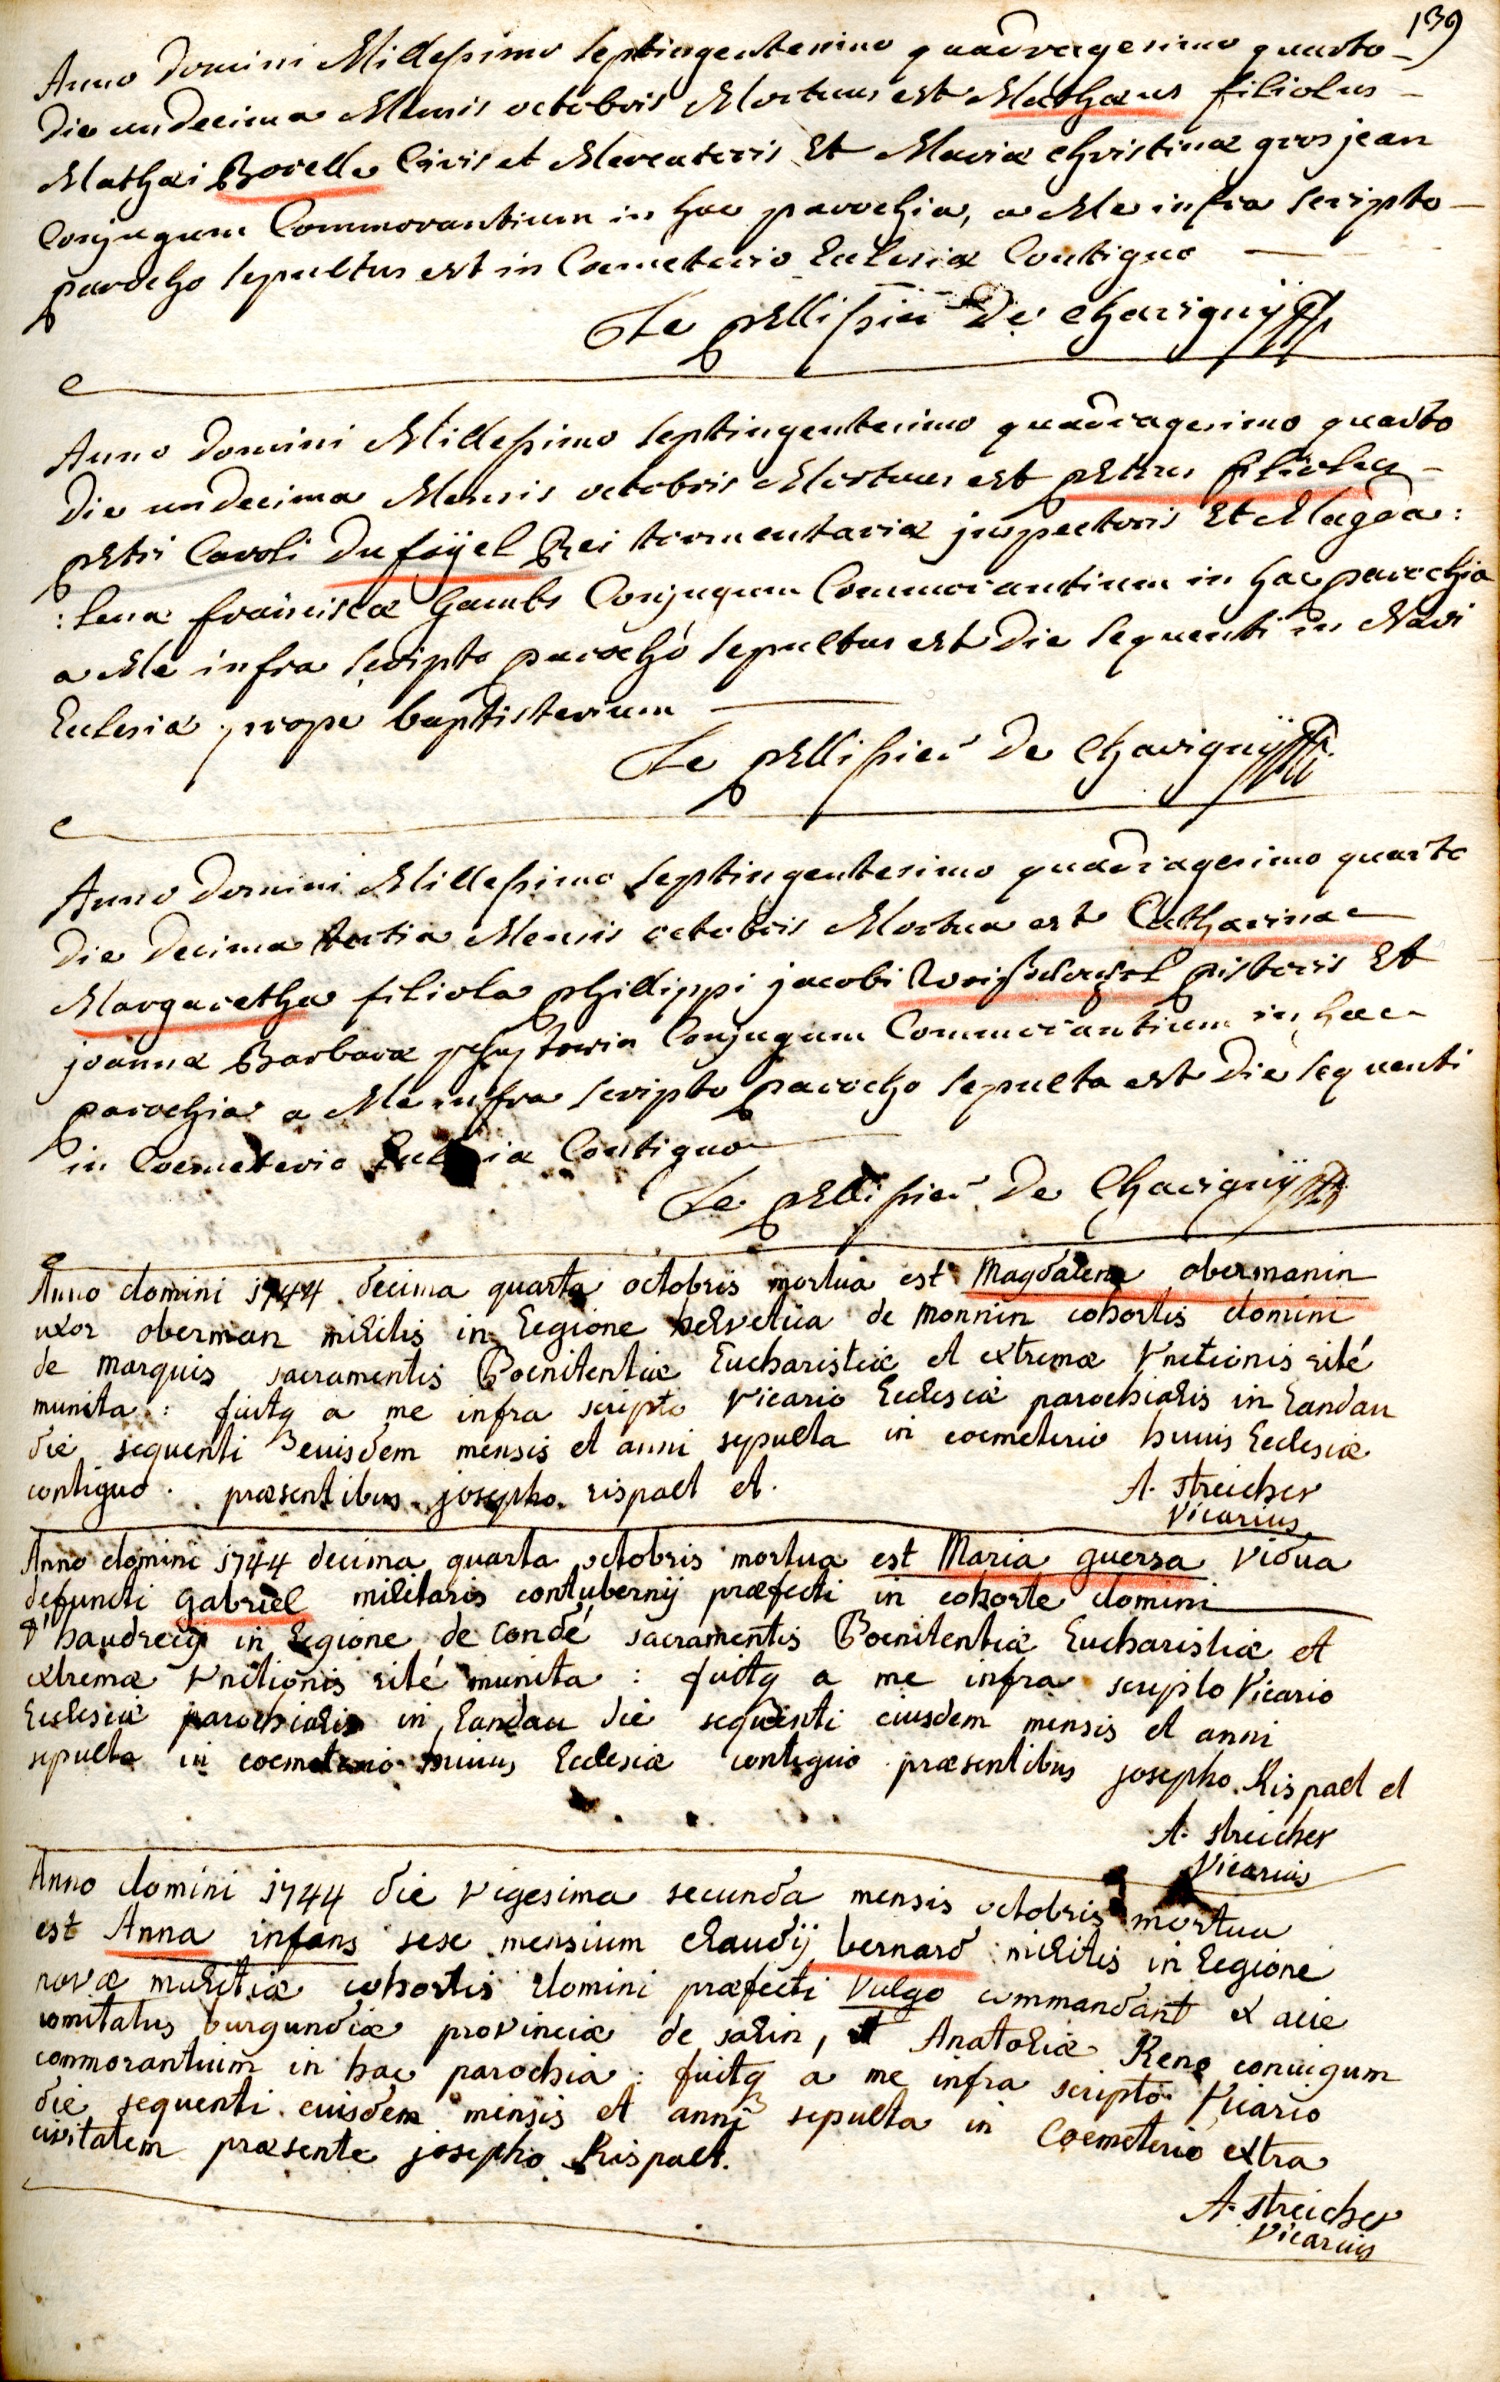 139
Anno Domini Millesimo septingentesimo quadragesimo quarto
Die undecima Mensis octobris Mortuus est Mathæus filiolus
Mathæi Borelle Civis et Mercatoris Et Mariæ Christinæ grosjean
Conjugum Commorantium in hac parochia, a Me infra scripto
parocho sepultus est in Coemeterio Ecclesiæ Contiguo
Le pellissier De Chavignÿ
Anno Domini Millesimo septingentesimo quadragesimo quarto
Die undecima Mensis octobris Mortuus est petrus filiolus
petri Caroli Du faÿel Rei tormentariæ jnspectoris Et Magda:
:lena francisca Combs Conjugum Commorantium in hac parochia
a Me infra scripto parocho sepultus est Die sequenti in Navi
Ecclesiæ prope baptisterium
Le pellissier De Chavignÿ
Anno Domini Millesimo septingentesimo quadragesimo quarto
Die Decima tertia Mensis octobris Mortua est Catharina
Margaretha filiola phillippi jacobi pistoris Et
joannæ Barbaræ Conjugum Commorantium in hac
parochia a Me infra scripto parocho sepulta est Die sequenti
in Coemeterio Ecclesiæ Contiguo
Le pellissier De Chavignÿ
Anno domini 1744 decima quarta octobris mortua est Magdalena obermanin
uxor oberman militis in Legione helvetica de Monnin cohortis domini
de marquis sacramentis Poenitentiæ Eucharistiæ et extremæ Vnctionis rité
munita: fuitq a me infra scripto Vicario Ecclesiæ parochialis in Landau
die sequenti euisdem mensis et anni sepulta in coemeterio huius Ecclesiæ
contiguo. præsentibus josepho rispaet et.
A. streicher
Vicarius
Anno domini 1744 decima quarta octobris mortua est Maria guersa vidua
defuncti Gabriel militaris contubernij præfecti in cohorte domini
d'haudrecij in Legione de Condé sacramentis Poenitentiæ Eucharistiæ et
extremæ Vnctionis rité munita: fuitq a me infra scripto Vicario
Ecclesiæ parochialis in Landau die sequenti eiusdem mensis et anni
sepulta in coemeterio huius Ecclesiæ contiguo præsentibus josepho Rispaet et
A. streicher
Vicarius
Anno domini 1744 die vigesima secunda mensis octobris mortua
est Anna infans sese mensium claudij bernard militis in Legione
novæ militiæ cohortis domini præfecti vulgo commandant ex acie
comitatus burgundiæ provinciæ de salin, et Anatoliæ Rene coniugum
commorantium in hac parochia: fuitq a me infra scripto Vicario
die sequenti euisdem mensis et annj sepulta in Coemeterio extra
civitatem præsente josepho Rispaet.
A. streicher
Vicarius